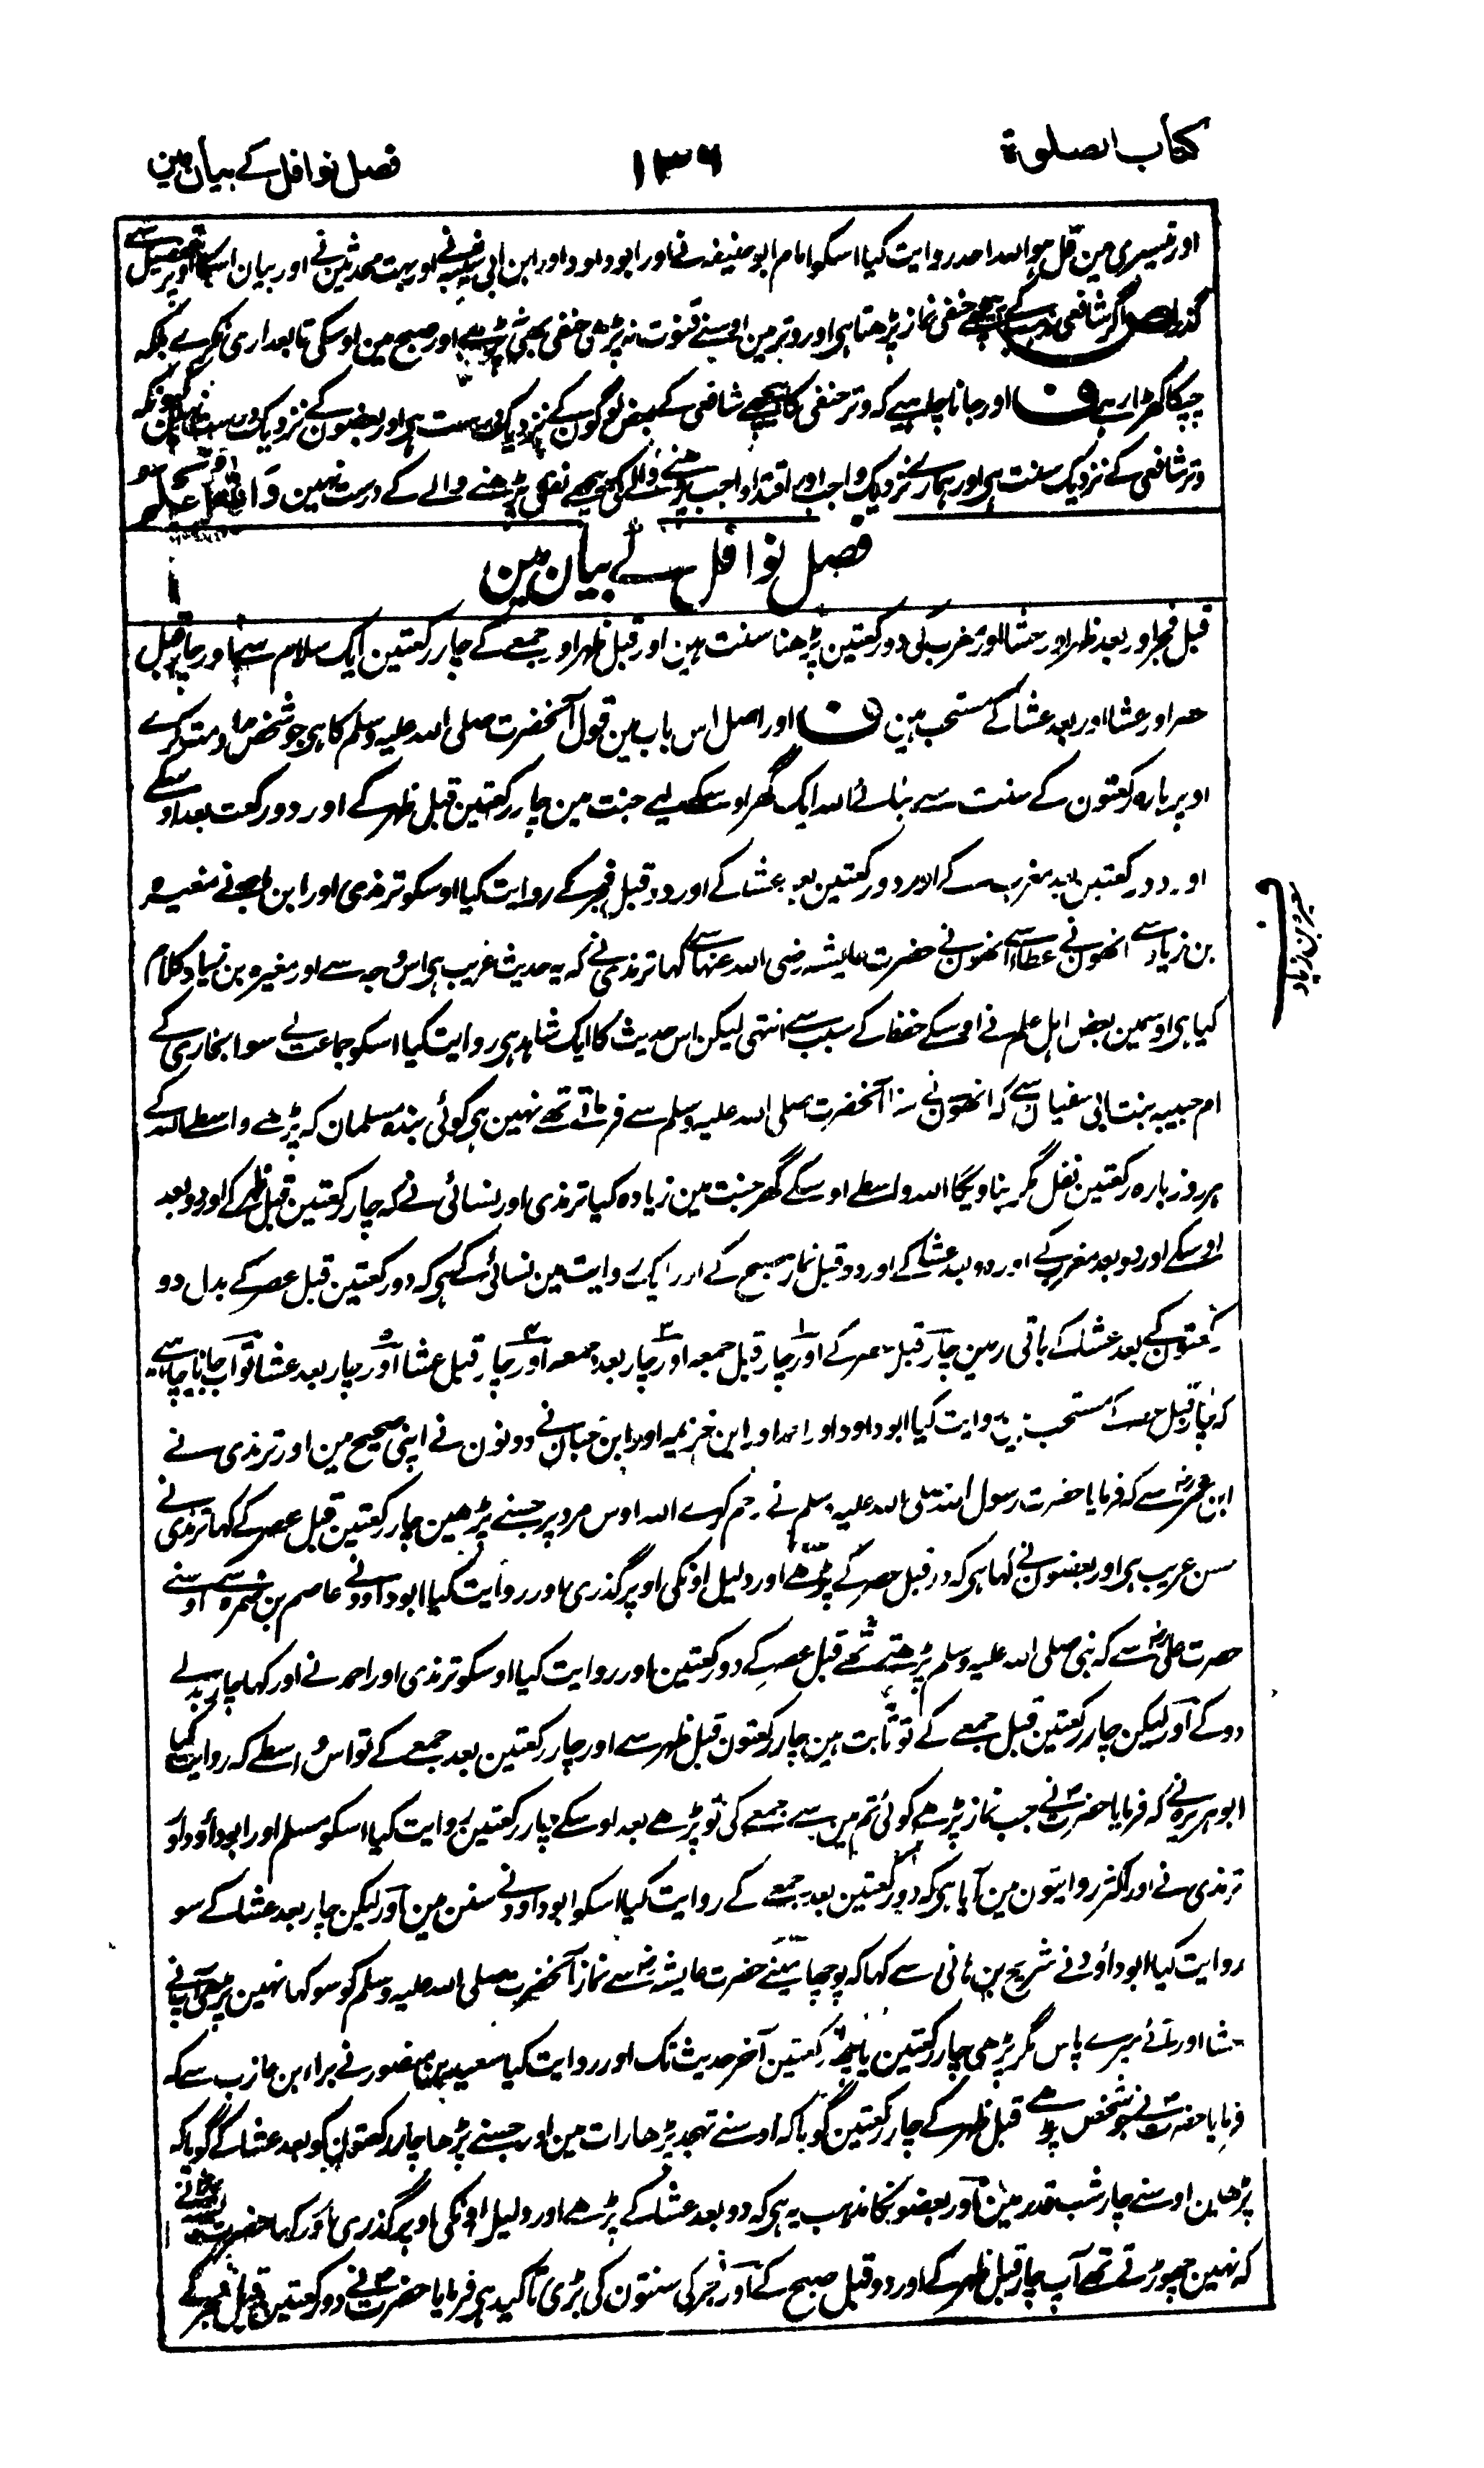 کتاب الصلوۃ
۱۳۶
فصل نوافل کے بیان مین
اور تیسری مین قل ہو اللہ احد روایت کیا اسکو امام ابو حنیفہ نے اور ابو داود اور ابن ابی شیبہ نے اور بہت محدثین نے اور بیان اسکا اوپر تفصیل سے
گذرا ص اگر شافعی مذہب کے پیچھے حنفی نماز پڑھتا ہی اور وتر مین اوسنے قنوت نہ پڑھی حنفی بھی پڑھے اور صبح مین اوسکی تابعداری نکرے بلکہ
چپکا کھڑا رہے ف اور جانا چاہیے کہ وتر حنفی کا پیچھے شافعی کے بعض لوگون کے نزدیک درست ہی اور بعضون کے نزدیک درست نہین کیونکہ
وتر شافعی کے نزدیک سنت ہی اور ہمارے نزدیک واجب اور اقتدا واجب پڑھنے والے کی پیچھے نفل پڑھنے والے کے درست نہین واللہ اعلم
فصل نوافل کے بیان مین
قبل فجر اور بعد ظہر اور عشا اور مغرب کی دو رکعتین پڑھنا سنت ہین اور قبل ظہر اور جمعے کے چار رکعتین ایک سلام سے اور چار قبل
عصر اور عشا اور بعد عشا کے مستحب ہین ف اور اصل اس باب مین قول آنحضرت صلی اللہ علیہ وسلم کا ہی جو شخص مداومت کرے
اوپر بارہ رکعتون کے سنت سے بنائے اللہ ایک گھر اوسکے لیے جنت مین چار رکعتین قبل ظہر کے اور دو رکعت بعد اوسکے
اور دو رکعتین بعد مغرب کے اور دو رکعتین بعد عشا کے اور دو قبل فجر کے روایت کیا اوسکو ترمذی اور ابن ماجہ نے مغیرہ
بن زیاد سے انھون نے عطا سے انھون نے حضرت عایشہ رضی اللہ عنہا سے کہا ترمذی نے کہ یہ حدیث غریب ہی اس وجہ سے اور مغیرہ بن زیاد کلام
کیا ہی اوسمین بعض اہل علم نے اوسکے حفظ کے سبب سے انتہی لیکن اس حدیث کا ایک شاہد ہی روایت کیا اسکو جماعت نے سوا بخاری کے
ام حبیبہ بنت ابی سفیان سے کہ انھون نے سنا آنحضرت صلی اللہ علیہ وسلم سے فرماتے تھے نہین ہی کوئی بندہ مسلمان کہ پڑھے واسطے اللہ کے
ہر روز بارہ رکعتین نفل مگر بناویگا اللہ واسطے اوسکے گھر جنت مین زیادہ کیا ترمذی اور نسائی نے کہ چار رکعتین قبل ظہر کے اور دو بعد
اوسکے اور دو بعد مغرب کے اور دو بعد عشا کے اور دو قبل نماز صبح کے اور ایک روایت مین نسائی کے ہی کہ دو رکعتین قبل عصر کے بدل دو
رکعتون کے بعد عشا کے باقی رہین چار قبل عصر کے اور چار قبل جمعہ اور چار بعد جمعہ اور چار قبل عشا اور چار بعد عشا تو اب جانا چاہیے
کہ چار قبل عصر کے مستحب ہین روایت کیا ابو داود اور احمد اور ابن خزیمہ اور ابن حبان نے دونون نے اپنی صحیح مین اور ترمذی نے
ابن عمر سے کہ فرمایا حضرت رسول اللہ صلی اللہ علیہ وسلم نے رحم کرے اللہ اوس مرد پر جسنے پڑھین چار رکعتین قبل عصر کے کہا ترمذی نے
حسن غریب ہی اور بعضون نے کہا ہی کہ دو قبل عصر کے پڑھے اور دلیل اونکی اوپر گذری اور روایت کیا ابو داود نے عاصم بن ضمرہ سے اوسنے
حضرت علی سے کہ نبی صلی اللہ علیہ وسلم پڑھتے تھے قبل عصر کے دو رکعتین اور روایت کیا اوسکو ترمذی اور احمد نے اور کہا چار بدلے
دو کے اور لیکن چار رکعتین قبل جمعے کے تو ثابت ہین چار رکعتون قبل ظہر سے اور چار رکعتین بعد جمعے کے تو اس واسطے کہ روایت کیا
ابو ہریرہ نے کہ فرمایا حضرت نے جب نماز پڑھے کوئی تم مین سے جمعے کی تو پڑھے بعد اوسکے چار رکعتین روایت کیا اسکو مسلم اور ابو داؤد اور
ترمذی نے اور اکثر روایتون مین آیا ہی کہ دو رکعتین بعد جمعے کے روایت کیا اسکو ابو داود نے سنن مین اور لیکن چار بعد عشا کے سو
روایت کیا ابو داؤد نے شریح بن ہانی سے کہا کہ پوچھا مینے حضرت عایشہ سے نماز آنحضرت صلی اللہ علیہ وسلم کو سو کہا نہین پڑھی آپنے
عشا اور آئے میرے پاس مگر پڑھی چار رکعتین یا چھہ رکعتین آخر حدیث تک اور روایت کیا سعید بن منصور نے براء ابن عازب سے کہ
فرمایا حضرت نے جو شخص پڑھے قبل ظہر کے چار رکعتین گویا کہ اوسنے تہجد پڑھا رات مین اور جسنے پڑھا چار رکعتون کو بعد عشا کے گویا کہ
پڑھین اوسنے چار شب قدر مین اور بعضونکا مذہب یہ ہی کہ دو بعد عشا کے پڑھے اور دلیل اونکی اوپر گذری اور کہا حضرت عایشہ نے
کہ نہین چھوڑتے تھے آپ چار قبل ظہر کے اور دو قبل صبح کے اور فجر کی سنتون کی بڑی تاکید ہی فرمایا حضرت نے دو رکعتین قبل فجر کے
مغیرہ بن زیاد